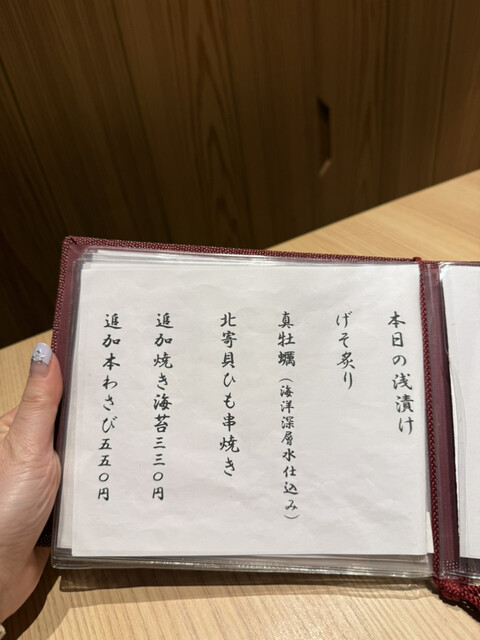 本日の浅漬け
げそ炙り
真牡蠣（海洋深層水仕込み）
北寄貝ひも串焼き
追加焼き海苔三三〇円
追加本わさび五五〇円